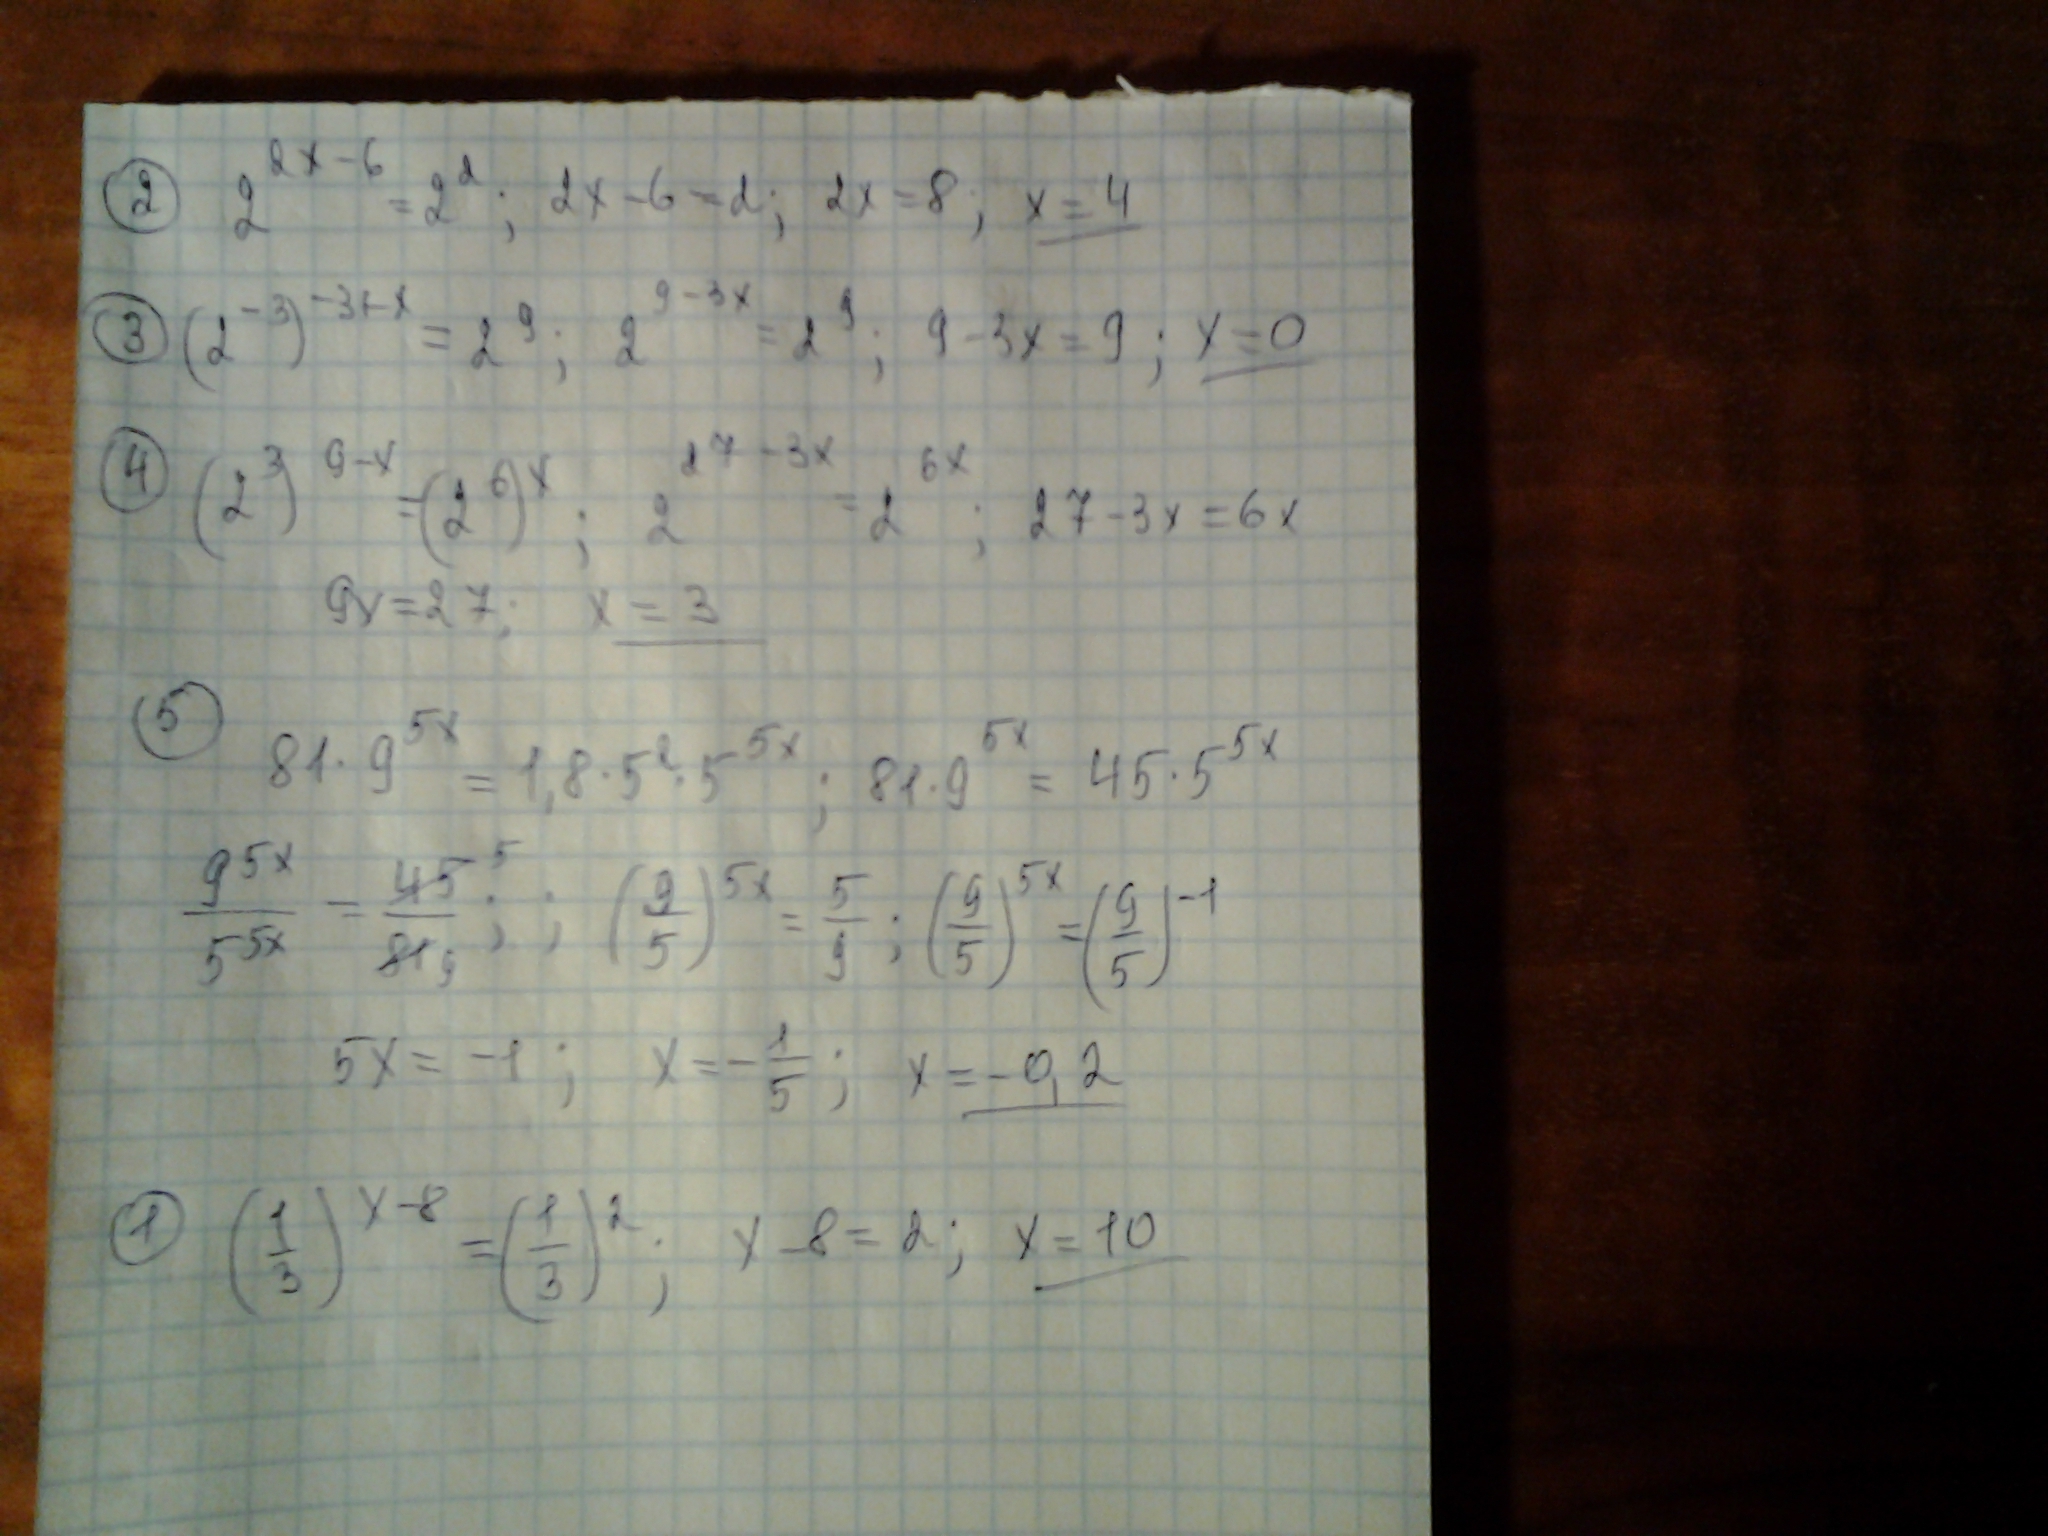 ② 2^(2x-6) = 2^2; 2x-6=2; 2x=8; x=4
③ (2^(-3))^(-3+x) = 2^9; 2^(9-3x) = 2^9; 9-3x=9; x=0
④ (2^3)^(9-x) = (2^6)^x; 2^(27-3x) = 2^(6x); 27-3x=6x
9x=27; x=3
⑤
81·9^(5x) = 1,8·5^2·5^(5x); 81·9^(5x) = 45·5^(5x)
9^(5x)/5^(5x) = 45 5/81 9; ; (9/5)^(5x) = 5/9; (9/5)^(5x) = (9/5)^(-1)
5x=-1; x=-1/5; x=-0,2
① (1/3)^(x-8) = (1/3)^2; x-8=2; x=10